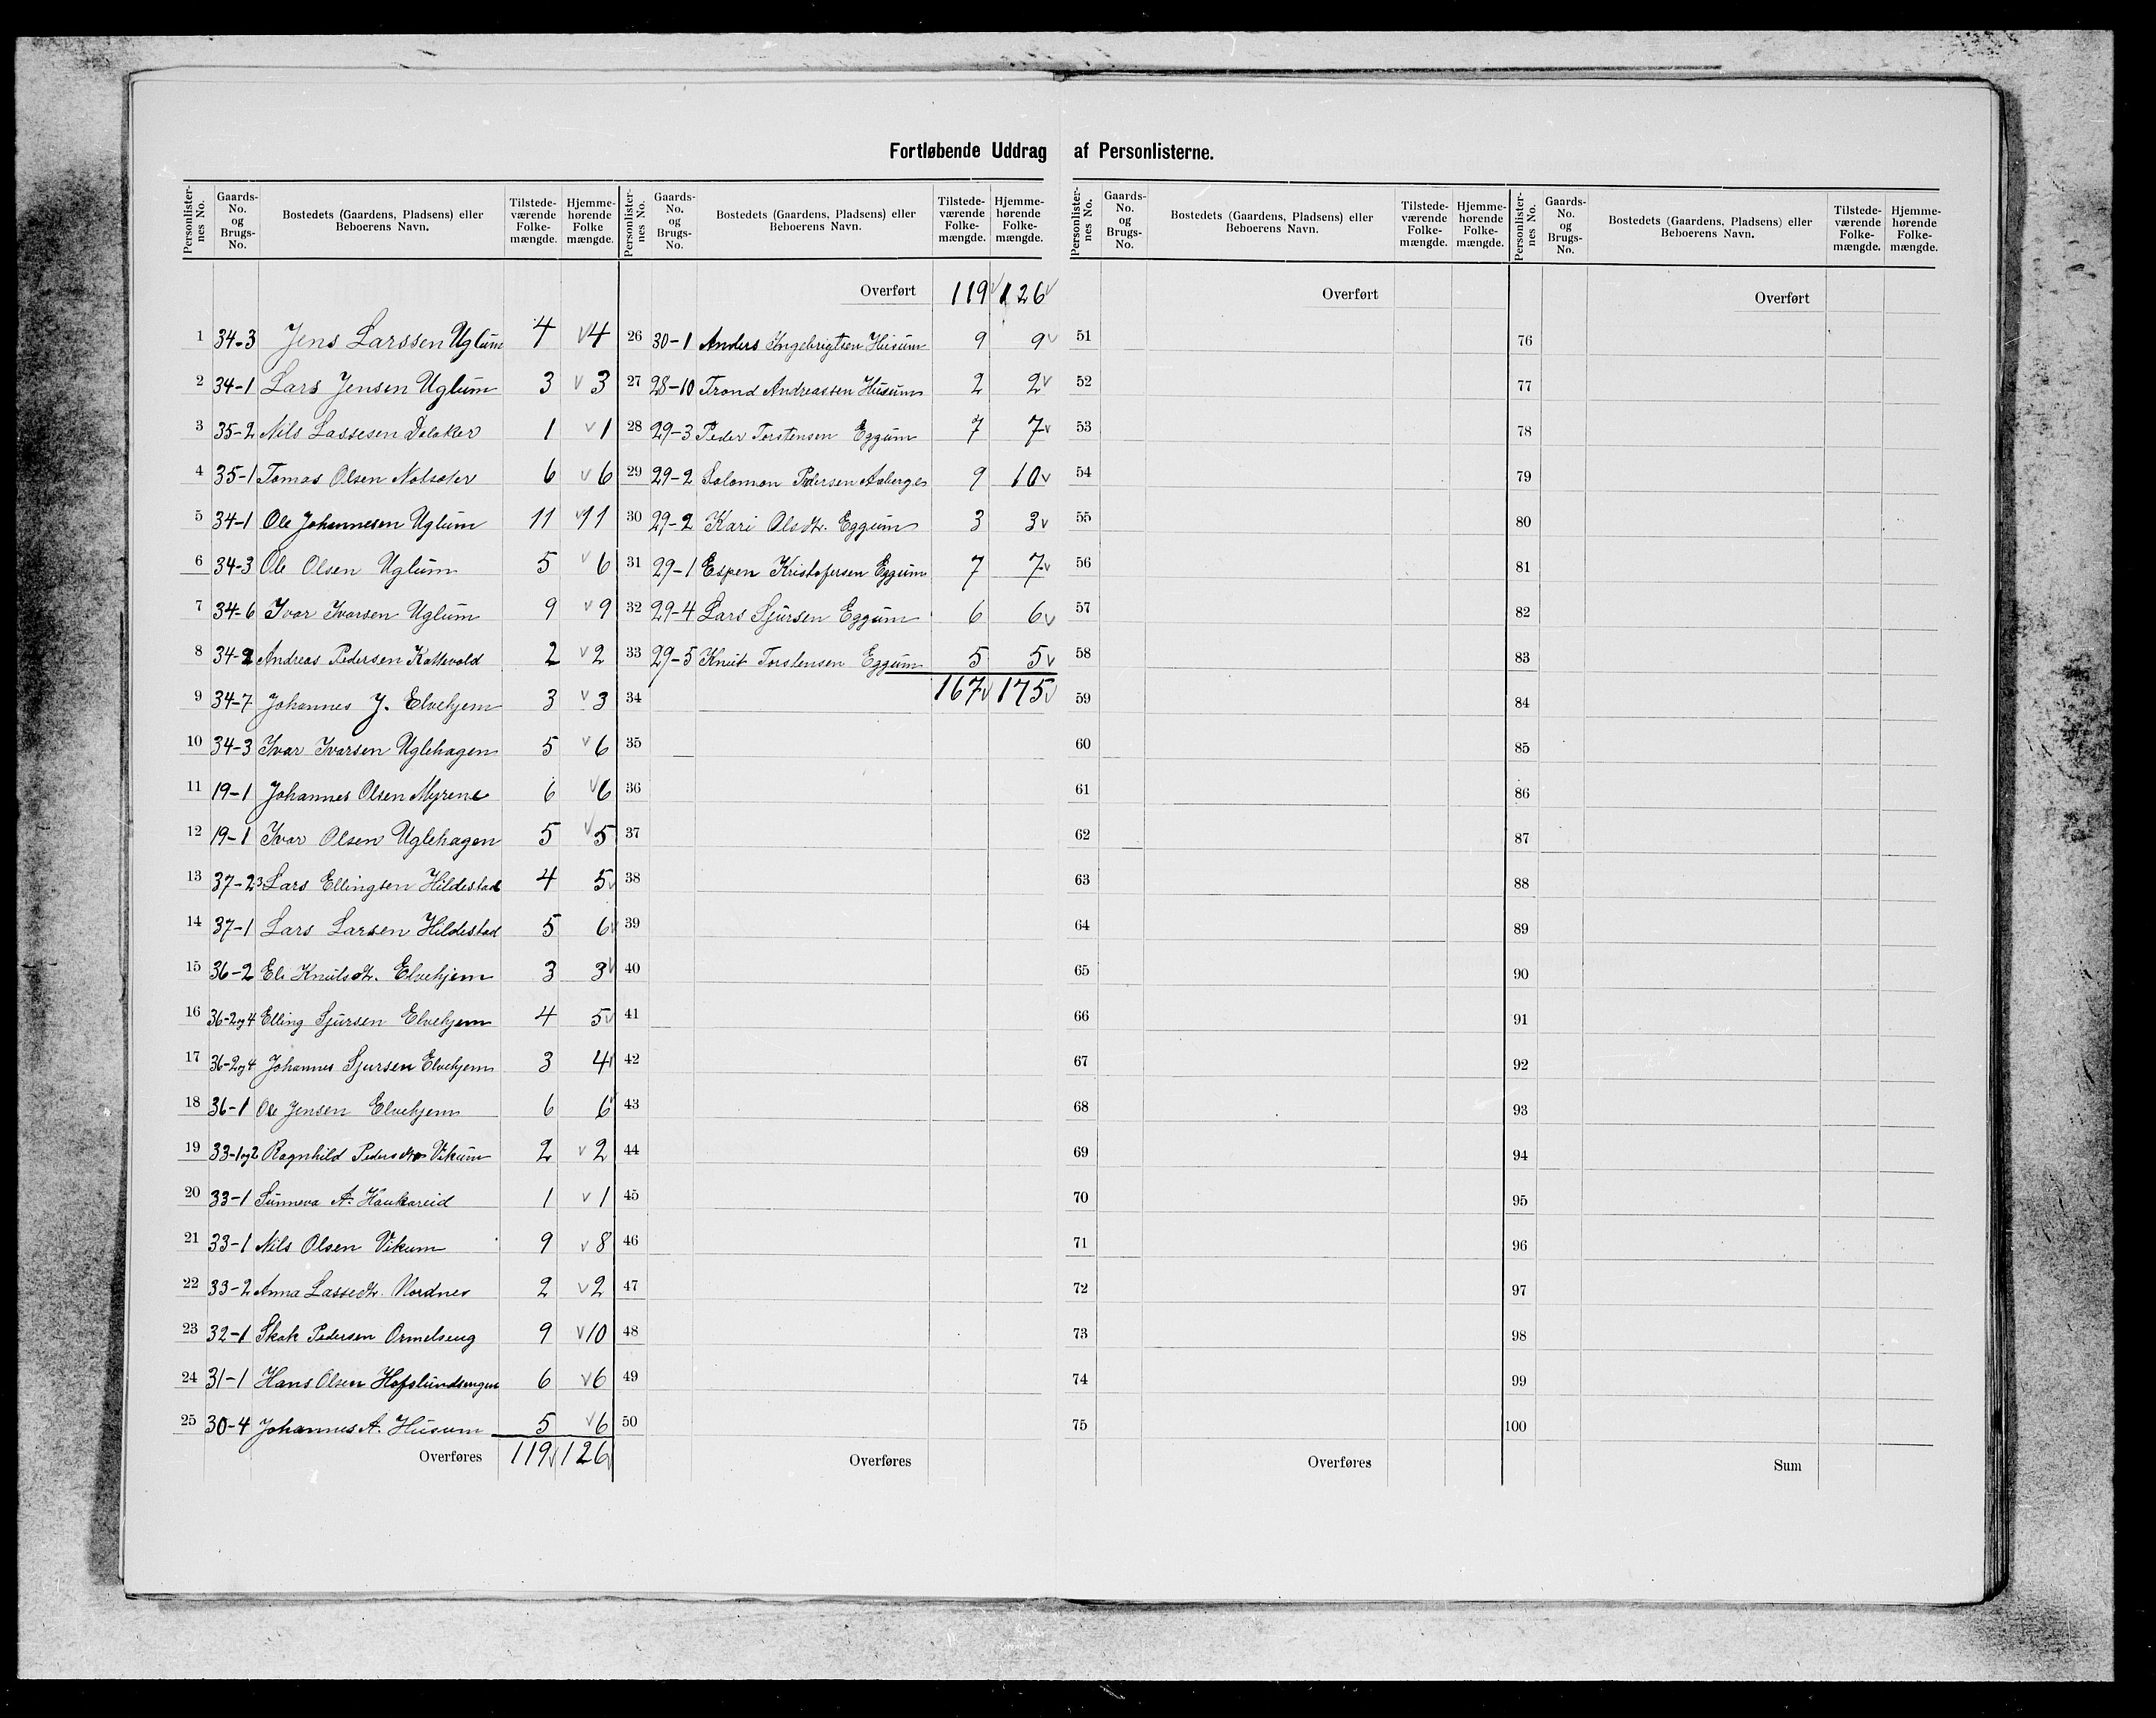 Fortløbende Uddrag af Personlisterne.
Personlister-nes No. Gaards-No. og Brugs-No. Bostedets (Gaardens, Pladsens) eller Beboerens Navn. Tilstede-værende Folke-mængde. Hjemme-hørende Folke mængde.
1 34-3 Jens Larssen Uglum 4 v4
2 34-1 Lars Jensen Uglum 3 v 3
3 35-2 Nils Lassesen Dalaker 1 v1
4 35-1 Tomas Olsen 6 v6
5 34-1 Ole Johannesen Uglum 11 v11
6 34-3 Ole Olsen Uglum 5 v 6
7 34-6 Ivar Ivarsen Uglum 9 v9
8 34-2 Andreas Pedersen Kattevold 2 v2
9 34-7 Johannes J. Elvehjem 3 v 3
10 34-3 Ivar Ivarsen Uglehagen 5 v6
11 19-1 Johannes Olsen Myrene 6 v6
12 19-1 Ivar Olsen Uglehagen 5 v5
13 37-2 3 Lars Ellingsen Hildestad 4 5v
14 37-1 Lars Larsen Hildestad 5 6v
15 36-2 Eli Knutsdtr. Elvehjem 3 3v
16 36-2og4 Elling Sjursen Elvehjem 4 5v
17 36-2og4 Johannes Sjursen Elvehjem 3 4v
18 36-1 Ole Jensen Elvehjem 6 6v
19 33-1og2 Ragnhild Pedersdtr Vikum 2 v2
20 33-1 Sunneva A. Haukareid 1 v1
21 33-1 Nils Olsen Vikum 9 v8
22 33-2 Anna Lassedtr. Nordnes 2 v2
23 32-1 Skak Pedersen Ormelseng 9 v10
24 31-1 Hans Olsen Hofslundsengen 6 v6
25 30-4 Johannes A. Husum 5 v6
Overføres 119v 126v
Personlister-nes No. Gaards-No. og Brugs-No. Bostedets (Gaardens, Pladsens) eller Beboerens Navn. Tilstede-værende Folke-mængde. Hjemme-hørende Folke-mængde.
Overført 119v 126v
26 30-1 Anders Ingebrigtsen Husum 9 9v
27 28-10 Trond Andreassen Husum 2 2v
28 29-3 Peder Torstensen Eggum 7 7v
29 29-2 Salomon Pedersen Aaberge 9 10v
30 29-2 Kari Olsdtr. Eggum 3 3v
31 29-1 Espen Kristofersen Eggum 7 7v
32 29-4 Lars Sjursen Eggum 6 6v
33 29-5 Knut Torstensen Eggum 5 5v
34 167v 175v
35
36
37
38
39
40
41
42
43
44
45
46
47
48
49
50
Overføres
Personlister-nes No. Gaards-No. og Brugs-No. Bostedets (Gaardens, Pladsens) eller Beboerens Navn. Tilstede-værende Folke-mængde. Hjemme-hørende Folke-mængde.
Overført
51
52
53
54
55
56
57
58
59
60
61
62
63
64
65
66
67
68
69
70
71
72
73
74
75
Overføres
Personlister-nes No. Gaards-No. og Brugs-No. Bostedets (Gaardens, Pladsens) eller Beboerens Navn. Tilstede-værende Folke-mængde. Hjemme-hørende Folke-mængde.
Overført
76
77
78
79
80
81
82
83
84
85
86
87
88
89
90
91
92
93
94
95
96
97
98
99
100
Sum